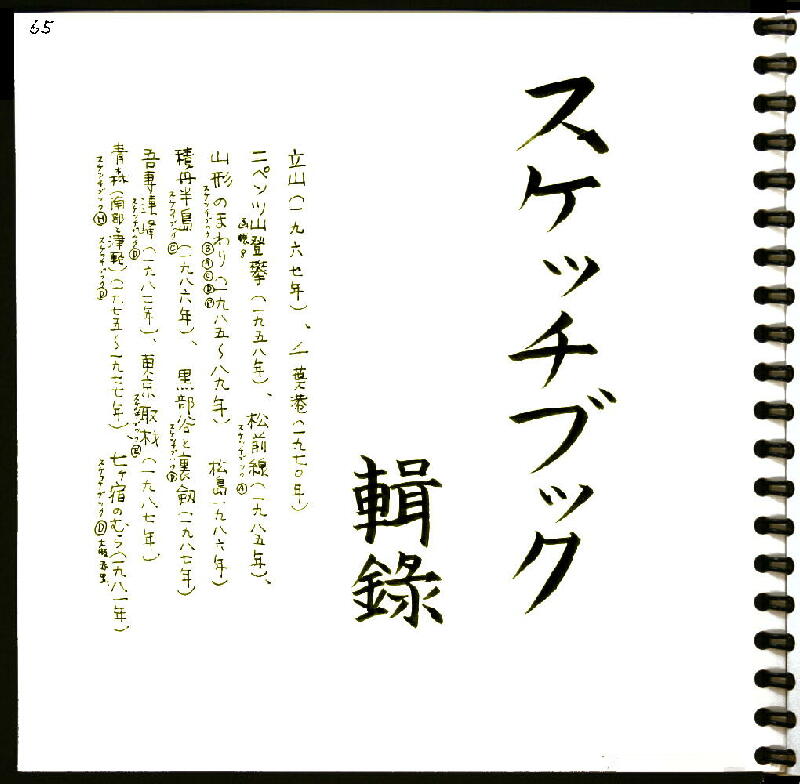 65
スケッチブック
輯錄
立山(一九六七年)、千葉港(一九七〇年)
ニペソツ山登攀(一九五八年)、松前線(一九八五年)、
スケッチブックⒶ
山形のまわり(一九八五〜八九年) 松島(一九八六年)
スケッチブックⒷⒶⒸⒹ
積丹半島(一九八六年)、黒部谷と裏劔(一九八七年)
スケッチブックⒸ スケッチブックⒹ
吾妻連峰(一九八七年)、東京取材(一九八七年)
スケッチブックⒹ スケッチブックⒺ
青森(南部と津軽)(一九七五〜一九七七年)、七ヶ宿のむら(一九八一年)
スケッチブックⒽ スケッチブックⒹ スケッチブックⒹ